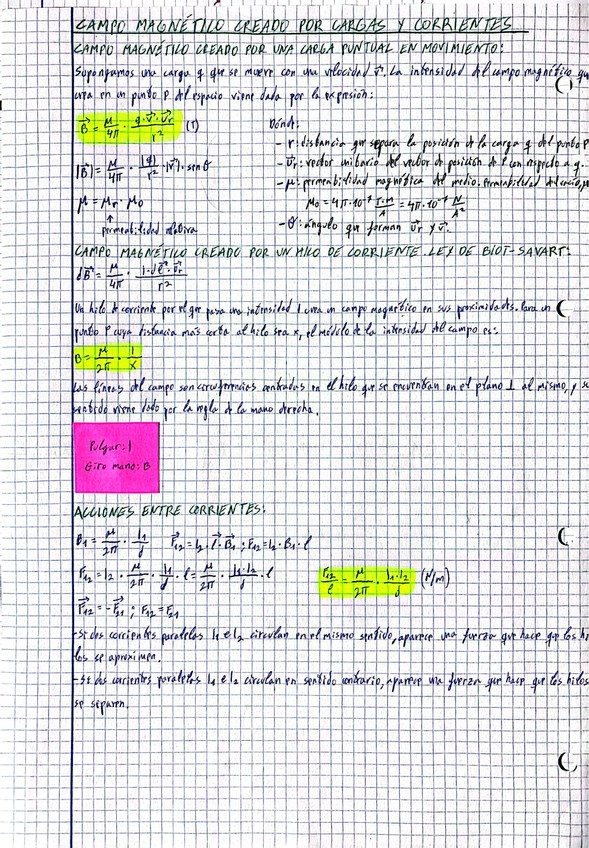 CAMPO MAGNÉTICO CREADO POR CARGAS Y CORRIENTES
CAMPO MAGNÉTICO CREADO POR UNA CARGA PUNTUAL EN MOVIMIENTO:
Supongamos una carga q que se mueve con una velocidad v⃗. La intensidad del campo magnético que
crea en un punto P del espacio viene dada por la expresión:
B⃗ = μ/4π · q·v⃗·u⃗r/r² (T)
|B⃗| = μ/4π · |q|/r² · |v⃗| · senθ
μ = μr · μ0
↑
permeabilidad relativa
Dónde:
- r: distancia que separa la posición de la carga q del punto P
- u⃗r: vector unitario del vector de posición de P con respecto a q.
- μ: permeabilidad magnética del medio. Permeabilidad del vacío,
μ0 = 4π·10⁻⁷ T·m/A = 4π·10⁻⁷ N/A²
- θ: ángulo que forman u⃗r y v⃗.
CAMPO MAGNÉTICO CREADO POR UN HILO DE CORRIENTE. LEY DE BIOT-SAVART:
dB⃗ = μ/4π · I·dl⃗·u⃗r/r²
Un hilo de corriente por el que pasa una intensidad I crea un campo magnético en sus proximidades. Para un
punto P cuya distancia más corta al hilo sea x, el módulo de la intensidad del campo es:
B = μ/2π · I/x
Las líneas del campo son circunferencias centradas en el hilo que se encuentran en el plano ⊥ al mismo, y su
sentido viene dado por la regla de la mano derecha.
Pulgar: I
Giro mano: B
ACCIONES ENTRE CORRIENTES:
B1 = μ/2π · I1/d F⃗12 = I2 · l⃗ · B⃗1 ; F12 = I2 · B1 · l
F12 = I2 · μ/2π · I1/d · l = μ/2π · I1·I2/d · l
F12/l = μ/2π · I1·I2/d (N/m)
F⃗12 = -F⃗21 ; F12 = F21
- Si dos corrientes paralelas I1 e I2 circulan en el mismo sentido, aparece una fuerza que hace que los hi
los se aproximen.
- Si dos corrientes paralelas I1 e I2 circulan en sentido contrario, aparece una fuerza que hace que los hilos
se separen.